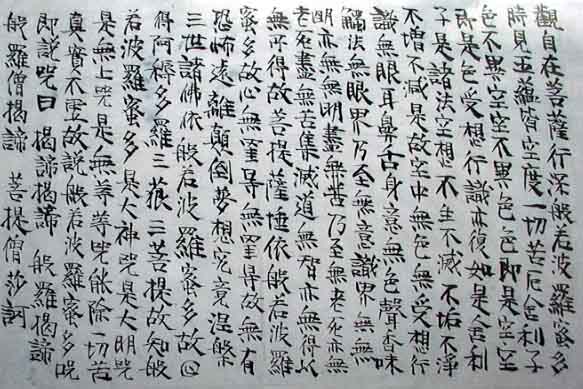 觀自在菩薩行深般若波羅蜜多
時見五蘊皆空度一切苦厄舍利子
色不異空空不異色色即是空空
即是色受想行識亦復如是舍利
子是諸法空想不生不滅 不垢不淨
不增不減是故空中無色無受想行
識無眼耳鼻舌身意無色聲香味
觸法無眼界乃至無意識界無無
明亦無無明盡無苦乃至無老死亦無
老死盡無苦集滅道無智亦無得以
無所得故菩提薩埵依般若波羅
蜜多故心無罣㝵無罣㝵故無有
恐怖遠離顛倒夢想究竟涅槃
三世諸佛依般若波羅蜜多故
得阿耨多羅三藐三菩提故知般
若波羅蜜多是大神咒是大明咒
是無上咒是無等等咒能除一切苦
真實不虛故說般若波羅蜜多咒
即說咒曰 揭諦揭諦 般羅揭諦
般羅僧揭諦 菩提僧莎訶